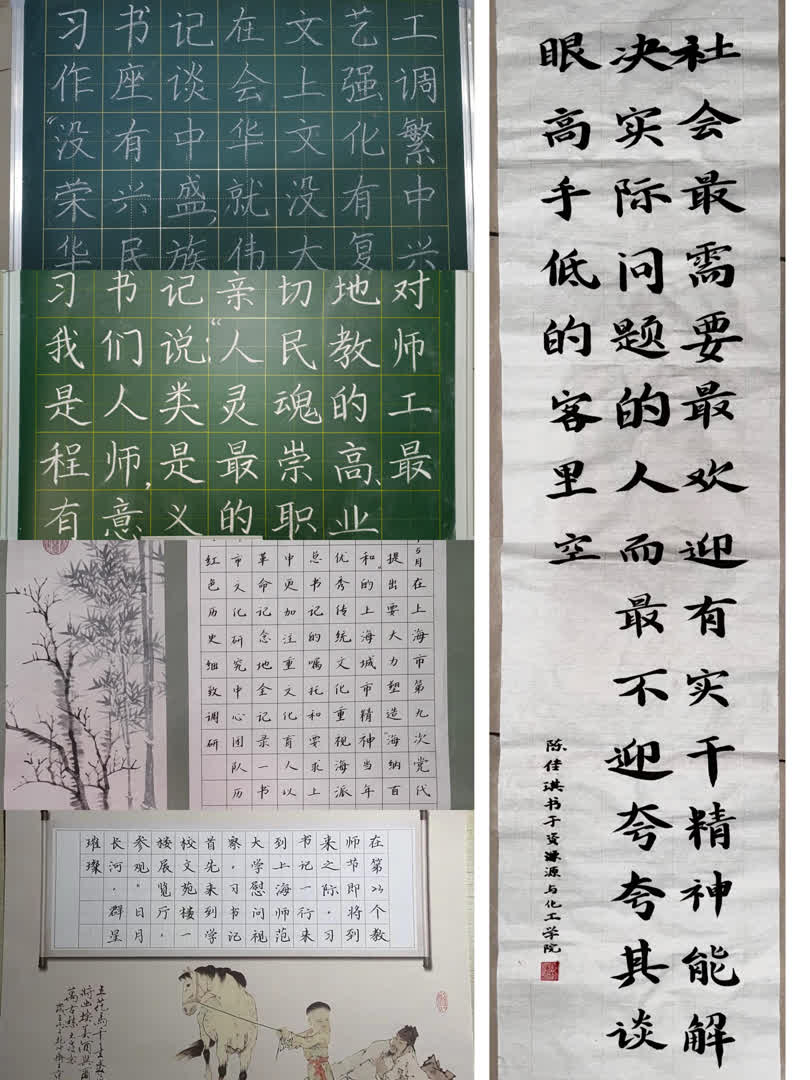 习书记在文艺工
作座谈会上强调
“没有中华文化繁
荣兴盛,就没有中
华民族伟大复兴
习书记亲切地对
我们说:“人民教师
是人类灵魂的工
程师,是最崇高、最
有意义的职业
5月在上海市第九次党代
提出要大力塑造“海纳百
和”的上海城市精神当年
优秀传统文化重视海派
总书记的嘱托和要求上
中更加注重文化育人以
革命记念地全记录一书
市文化研究中心团队历
红色历史细致调研
在第23个教
师节即将到
来之际,习
书记一行来
到上海师范
大学慰问视
察,习书记
首先来到学
校文苑楼一
楼展览厅,
参观“日月
长河·群星
璀璨
社会最需要最欢迎有实干精神能解
决实际问题的人而最不迎夸夸其谈
眼高手低的客里空
陈佳琪书于资源与化工学院